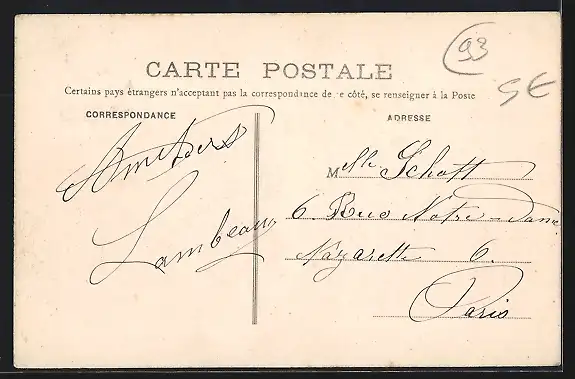 93
5€
CARTE POSTALE
Certains pays étrangers n'acceptant pas la correspondance de ce côté, se renseigner à la Poste
CORRESPONDANCE
ADRESSE
Lambeaux
Melle Schott
6 Rue Notre-Dame
Nazareth 6.
Paris